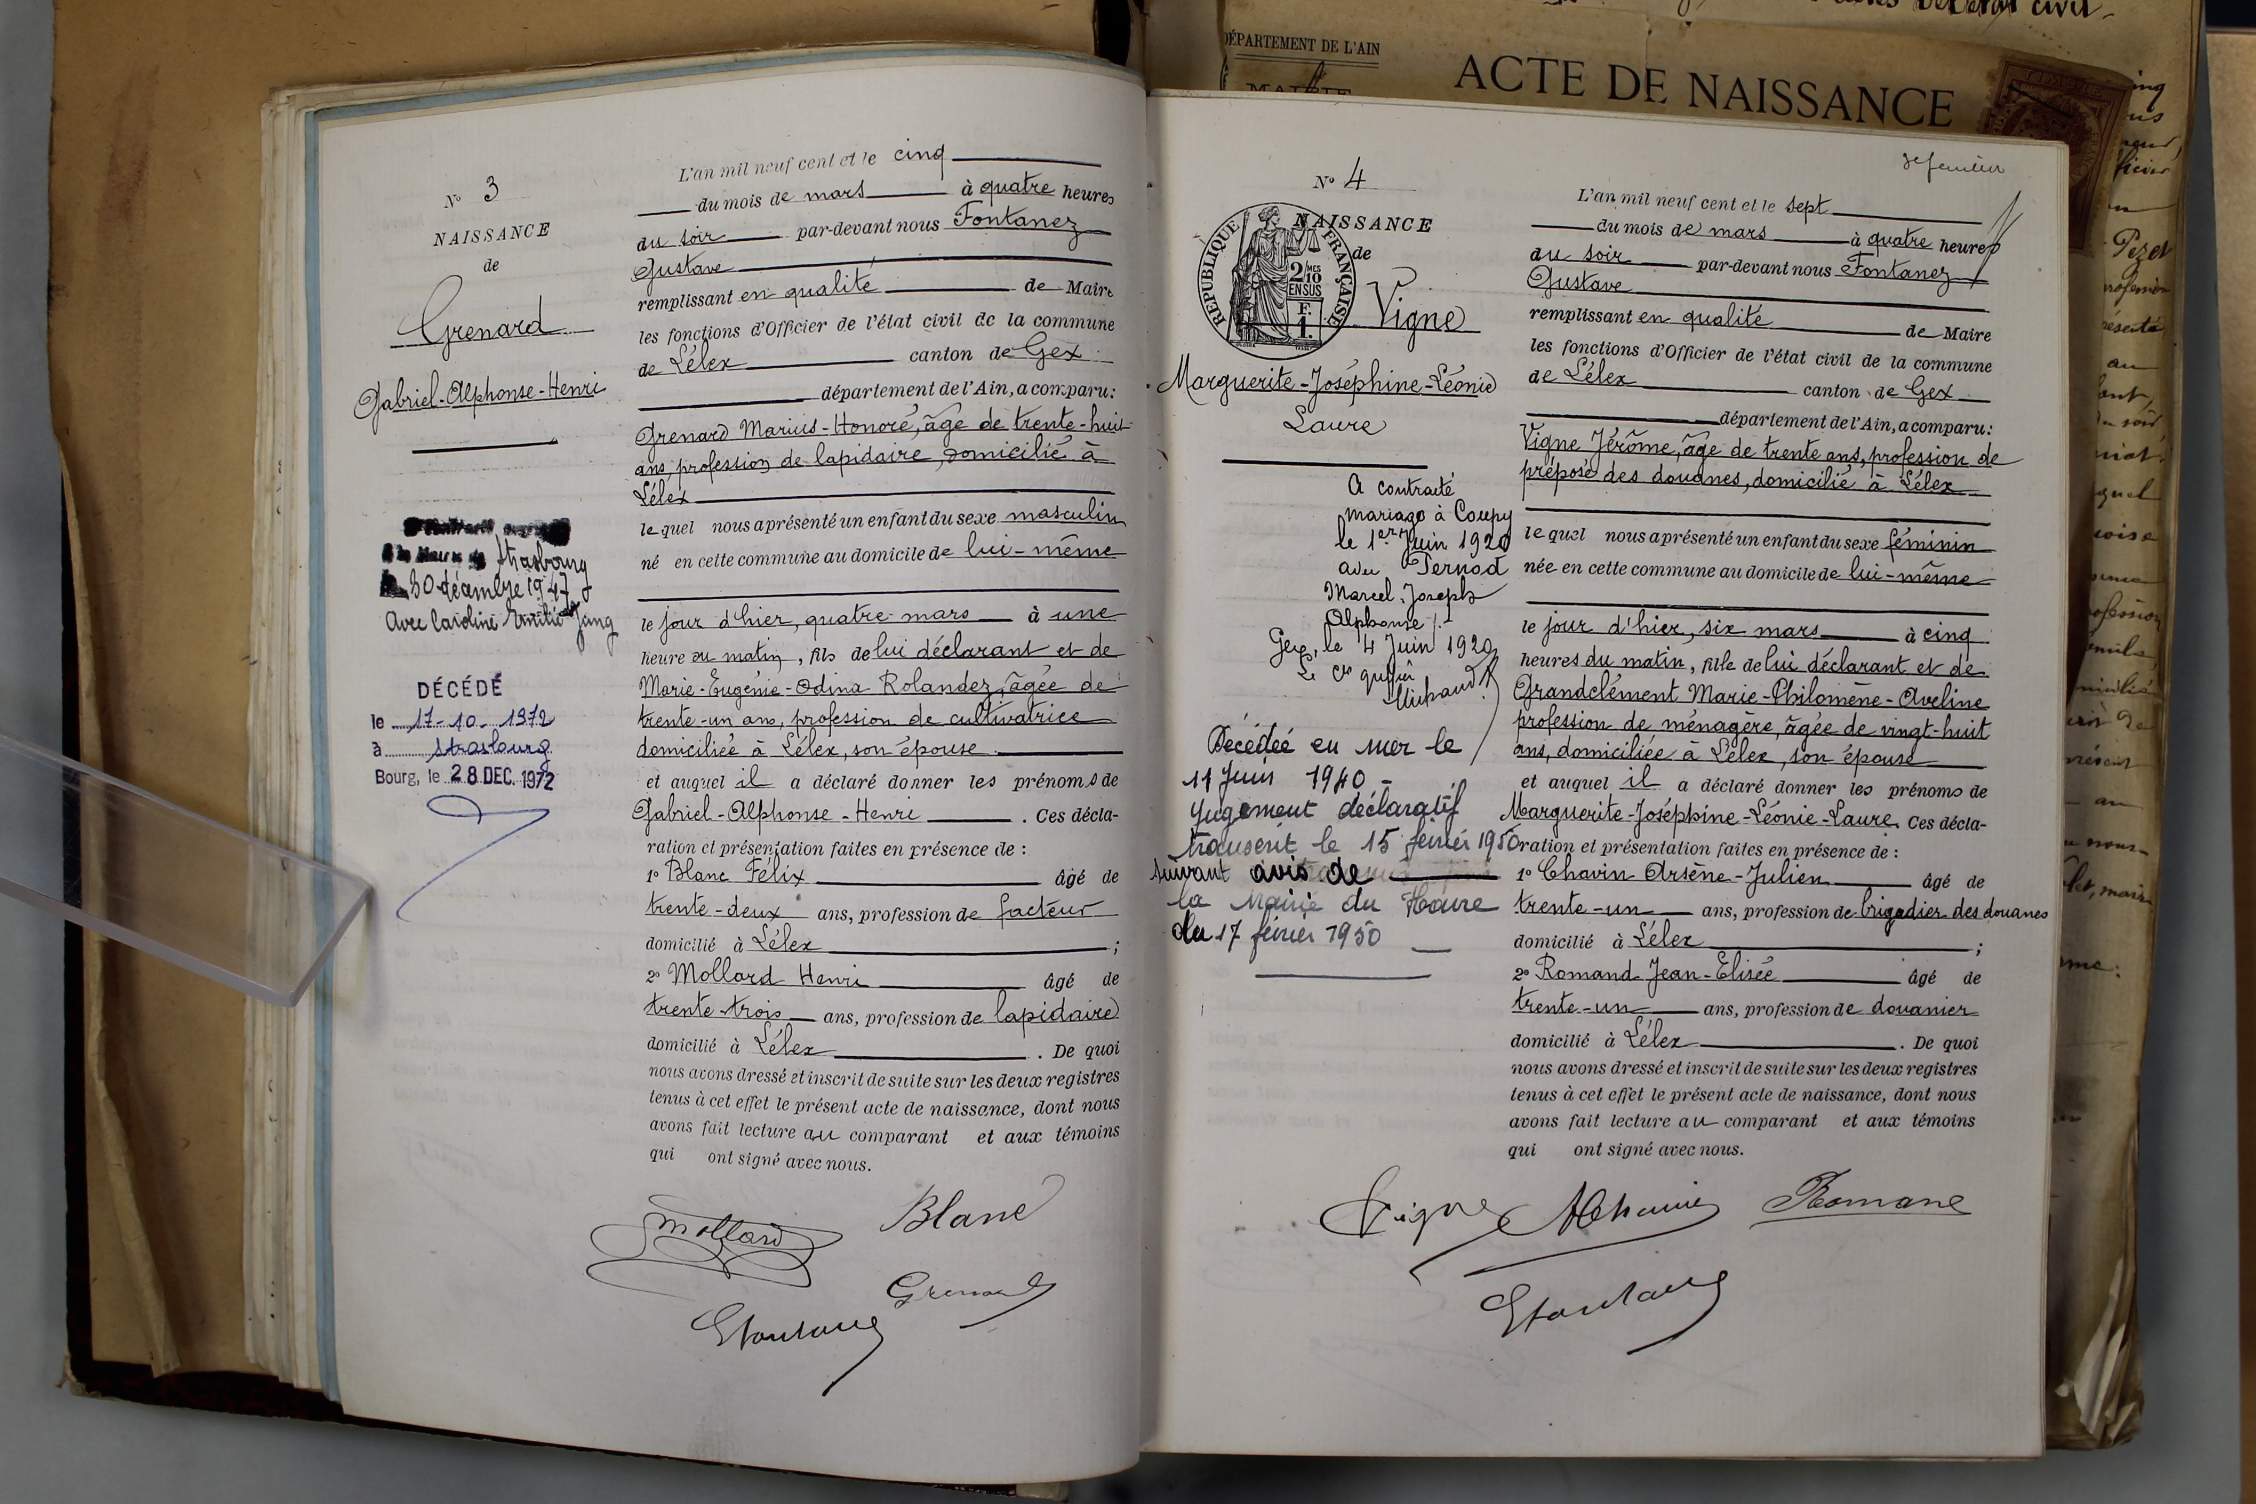 N° 3
NAISSANCE
de
Grenard
Gabriel-Alphonse-Henri
Strasbourg
30 décembre 1947
Avec Caroline Emilie Jang
DÉCÉDÉ
le 17-10-1972
à Strasbourg
Bourg, le 28 DEC. 1972
L'an mil neuf cent et le cinq
du mois de mars à quatre heures
du soir par-devant nous Fontanez
Gustave
remplissant en qualité de Maire
les fonctions d'Officier de l'état civil de la commune
de Lélex canton de Gex
département de l'Ain, a comparu:
Grenard Marius-Honoré, âgé de trente-huit
ans, profession de lapidaire, domicilié à
Lélex
lequel nous a présenté un enfant du sexe masculin
né en cette commune au domicile de lui-même
le jour d'hier, quatre mars à une
heure du matin, fils de lui déclarant et de
Marie-Eugénie-Odina Rolandez, âgée de
trente-un ans, profession de cultivatrice
domiciliée à Lélex, son épouse
et auquel il a déclaré donner les prénoms de
Gabriel-Alphonse-Henri. Ces décla-
ration et présentation faites en présence de :
1° Blanc Félix âgé de
trente-deux ans, profession de facteur
domicilié à Lélex ;
2° Mollard Henri âgé de
trente-trois ans, profession de lapidaire
domicilié à Lélex. De quoi
nous avons dressé et inscrit de suite sur les deux registres
tenus à cet effet le présent acte de naissance, dont nous
avons fait lecture au comparant et aux témoins
qui ont signé avec nous.
Mollard Blanc
Grenard
GFontanez
DÉPARTEMENT DE L'AIN
MAIRIE
ACTE DE NAISSANCE
N° 4
NAISSANCE
de
RÉPUBLIQUE FRANÇAISE
2/10 MES
EN SUS
F.
1.
Vigne
Marguerite-Joséphine-Léonie
Laure
A contracté
mariage à Coupy
le 1er Juin 1920
avec Pernod
Marcel-Joseph
Alphonse /.
Gex, le 4 Juin 1920
Le Cis greffier
Décédée en mer le
11 Juin 1940 -
Jugement déclaratif
transcrit le 15 février 1950
suivant avis de
la Mairie du Havre
du 17 février 1950
L'an mil neuf cent et le sept
du mois de mars à quatre heures
du soir par-devant nous Fontanez
Gustave
remplissant en qualité de Maire
les fonctions d'Officier de l'état civil de la commune
de Lélex canton de Gex
département de l'Ain, a comparu:
Vigne Jérôme, âgé de trente ans, profession de
préposé des douanes, domicilié à Lélex
lequel nous a présenté un enfant du sexe féminin
née en cette commune au domicile de lui-même
le jour d'hier, six mars à cinq
heures du matin, fille de lui déclarant et de
Grandclément Marie-Philomène-Aveline
profession de ménagère, âgée de vingt-huit
ans, domiciliée à Lélex, son épouse
et auquel il a déclaré donner les prénoms de
Marguerite-Joséphine-Léonie-Laure. Ces décla-
ration et présentation faites en présence de :
1° Chavin Arsène-Julien âgé de
trente-un ans, profession de brigadier des douanes
domicilié à Lélex ;
2° Romand Jean-Elisée âgé de
trente-un ans, profession de douanier
domicilié à Lélex. De quoi
nous avons dressé et inscrit de suite sur les deux registres
tenus à cet effet le présent acte de naissance, dont nous
avons fait lecture au comparant et aux témoins
qui ont signé avec nous.
Vigne AChavin Romand
GFontanez